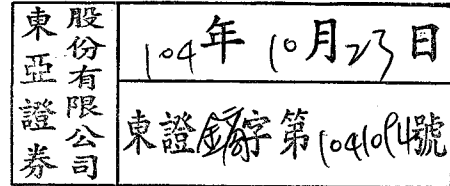 東亞證券
股份有限公司
104年10月23日
東證字第1041094號